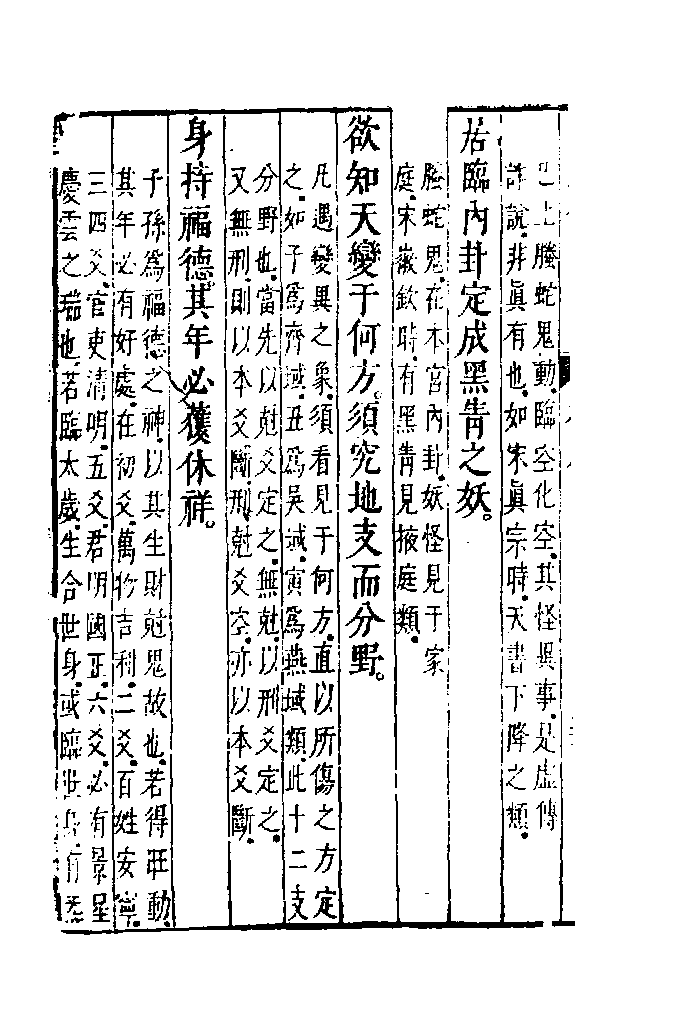 已上螣蛇鬼動臨空化空其怪異事是虛傳
詐說非眞有也如宋眞宗時天書下降之類
若臨內卦定成黑眚之妖。
螣蛇鬼在本宮內卦妖怪見于家
庭宋徽欽時有黑眚見掖庭類
欲知天變于何方。須究地支而分野。
凡遇變異之象須看見于何方直以所傷之方定
之如子爲齊域丑爲吳域寅爲燕域類此十二支
分野也當先以尅爻定之無尅以刑爻定之
又無刑則以本爻斷刑尅爻空亦以本爻斷
身持福德。其年必獲休祥。
子孫爲福德之神以其生財尅鬼故也若得旺動
其年必有好處在初爻萬物吉利二爻百姓安寧
三四爻官吏清明五爻君明國正六爻必有景星
慶雲之瑞也若臨太歲生合世身或臨世身有